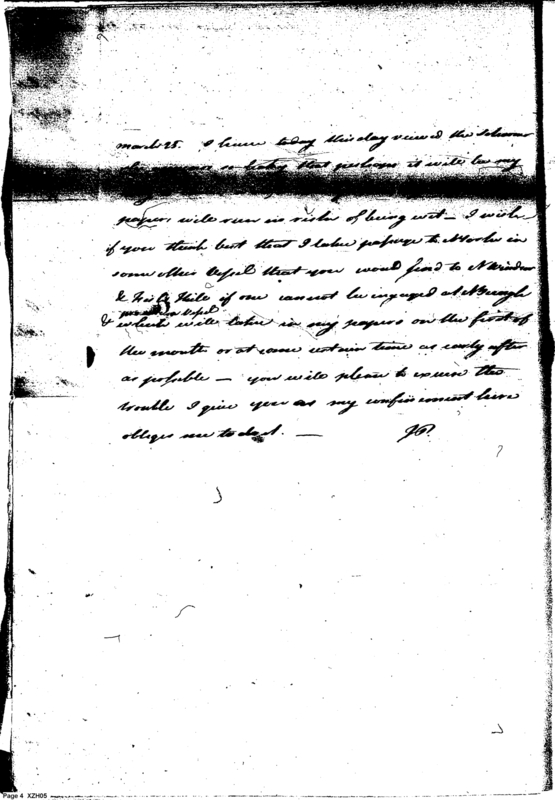 March 25. I have today this day viewed the Schooner
so leaky that perhaps it will be my
papers will run no risk of being wet — I wish
if you think best that I take passage to N York in
some other Vessel that you would send to N Windsor
& if one cannot be engaged at NBurgh
Vessel
& which will take in my papers on the first of
the month or at some certain time as early after
as possible — you will please to excuse the
trouble I give you as my confinement here
obliges me to do it. —
Page 4 XZH05